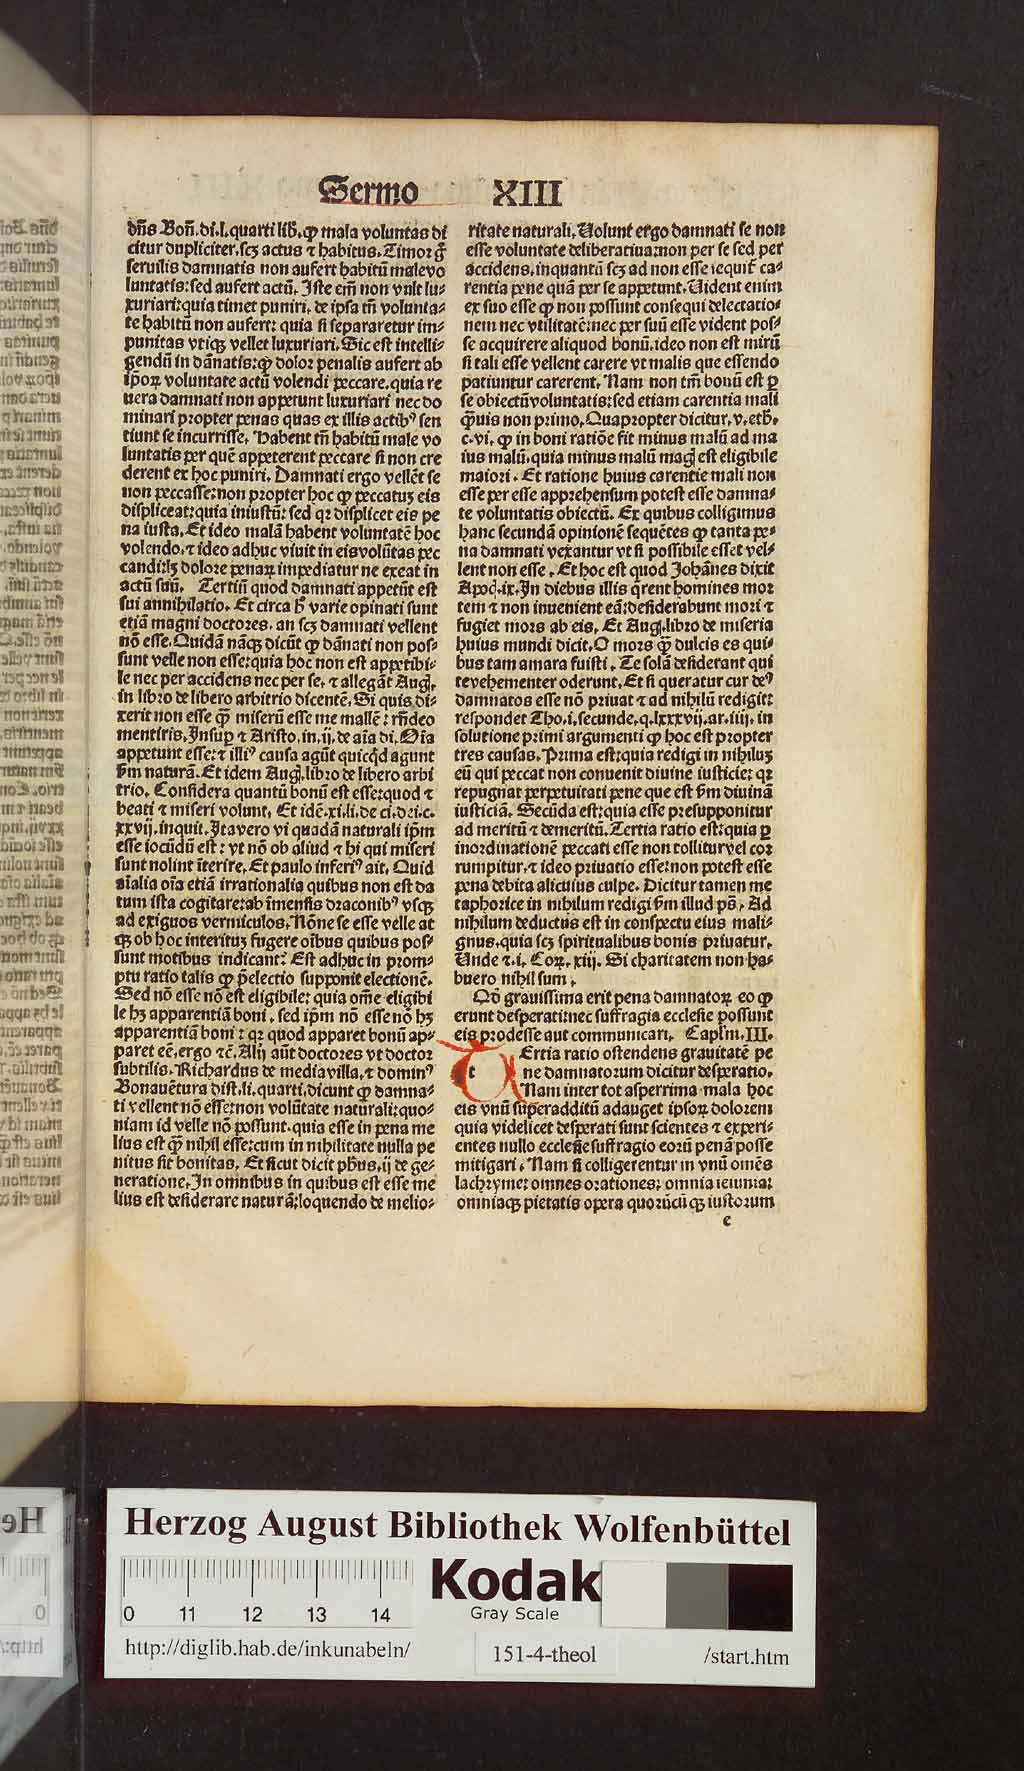 Sermo XIII
dñs Boñ. di. l. quarti lib̃. ꝙ mala voluntas di
citur dupliciter. scꝫ actus ⁊ habitus. Timor g̃
seruilis damnatis non aufert habitũ malevo
luntatis: sed aufert actũ. Iste em̃ non vult lu-
xuriari: quia timet puniri. de ipsa tñ volunta-
te habitũ non aufert: quia si separaretur im-
punitas vtiqꝫ vellet luxuriari. Sic est intelli-
gendũ in dãnatis: ꝙ dolor penalis aufert ab
ipoꝝ voluntate actũ volendi peccare. quia re
uera damnati non appetunt luxuriari nec do
minari propter penas quas ex illis actibꝰ sen
tiunt se incurrisse. Habent tñ habitũ male vo
luntatis per quẽ appeterent peccare si non cre
derent ex hoc puniri. Damnati ergo vellẽt se
non peccasse: non propter hoc ꝙ peccatuꝫ eis
displiceat: quia iniustũ: sed qꝛ displicet eis pe
na iusta. Et ideo malã habent voluntatẽ hoc
volendo. ⁊ ideo adhuc viuit in eis volũtas pec
candi: lꝫ dolore penaꝝ impediatur ne exeat in
actũ suũ. Tertiũ quod damnati appetũt est
sui annihilatio. Et circa h̃ varie opinati sunt
etiã magni doctores. an scꝫ damnati vellent
nõ esse. Quidã nãqꝫ dicũt ꝙ dãnati non pos-
sunt velle non esse: quia hoc non est appetibi-
le nec per accidens nec per se. ⁊ allegãt Augꝭ.
in libro de libero arbitrio dicentẽ. Si quis di-
xerit non esse ꝙ̃ miserũ esse me mallẽ: rñdeo
mentiris. Insup ⁊ Aristo. in. ij. de aĩa di. Oĩa
appetunt esse: ⁊ illiꝰ causa agũt quicqͥd agunt
s̃m naturã. Et idem Augꝭ. libro de libero arbi
trio. Considera quantũ bonũ est esse: quod ⁊
beati ⁊ miseri volunt. Et idẽ. xi. li. de ci. dei. c.
xxvij. inquit. Ita vero vi quadã naturali ip̃m
esse iocũdũ est: vt nõ ob aliud ⁊ hi qui miseri
sunt nolint ĩterire. Et paulo inferiꝰ ait. Quid
aĩalia oĩa etiã irrationalia quibus non est da
tum ista cogitare: ab ĩmensis draconibꝰ vsqꝫ
ad exiguos vermiculos. Nõne se esse velle at
qꝫ ob hoc interituꝫ fugere oĩbus quibus pos-
sunt motibus indicant? Est adhuc in prom-
ptu ratio talis ꝙ p̃electio supponit electionẽ.
Sed nõ esse nõ est eligibile: quia om̃e eligibi
le hꝫ apparentiã boni. sed ip̃m nõ esse nõ hꝫ
apparentiã boni: qꝛ quod apparet bonũ ap-
paret eẽ. ergo ⁊c̃. Alij aũt doctores vt doctor
subtilis. Richardus de mediavilla. ⁊ dominꝰ
Bonauẽtura dist. li. quarti. dicunt ꝙ damna-
ti vellent nõ esse: non volũtate naturali: quo-
niam id velle nõ possunt. quia esse in pena me
lius est ꝙ̃ nihil esse: cum in nihilitate nulla pe
nitus sit bonitas. Et sicut dicit ph̃us. ij de ge-
neratione. In omnibus in quibus est esse me
lius est desiderare naturã: loquendo de melio-
ritate naturali. Volunt ergo damnati se non
esse voluntate deliberatiua: non per se sed per
accidens. inquantũ scꝫ ad non esse sequit̃ ca-
rentia pene quã per se appetunt. Vident enim
ex suo esse ꝙ non possunt consequi delectatio-
nem nec vtilitatẽ: nec per suũ esse vident pos-
se acquirere aliquod bonũ. ideo non est mirũ
si tali esse vellent carere vt malis que essendo
patiuntur carerent. Nam non tm̃ bonũ est ꝑ
se obiectũ voluntatis: sed etiam carentia mali
q̃uis non primo. Quapropter dicitur. v. eth.
c. vi. ꝙ in boni ratiõe fit minus malũ ad ma
ius malũ. quia minus malũ magꝭ est eligibile
maiori. Et ratione huius carentie mali non
esse per esse apprehensum potest esse damna-
te voluntatis obiectũ. Ex quibus colligimus
hanc secundã opinionẽ sequẽtes ꝙ tanta pe-
na damnati vexantur vt si possibile esset vel-
lent non esse. Et hoc est quod Johãnes dixit
Apoc̃. ix. In diebus illis q̃rent homines mor
tem ⁊ non inuenient eã: desiderabunt mori ⁊
fugiet mors ab eis. Et Augꝭ. libro de miseria
huius mundi dicit. O mors ꝙ̃ dulcis es qui-
bus tam amara fuisti. Te solã desiderant qui
te vehementer oderunt. Et si queratur cur deꝰ
damnatos esse nõ priuat ⁊ ad nihilũ redigit:
respondet Tho. i. secunde. q. lxxxvij. ar. iiij. in
solutione primi argumenti ꝙ hoc est propter
tres causas. Prima est: quia redigi in nihiluꝫ
eũ qui peccat non conuenit diuine iusticie: qꝛ
repugnat perpetuitati pene que est s̃m diuinã
iusticiã. Secũda est: quia esse presupponitur
ad meritũ ⁊ demeritũ. Tertia ratio est: quia ꝑ
inordinationẽ peccati esse non tollitur vel cor
rumpitur. ⁊ ideo priuatio esse: non potest esse
pena debita alicuius culpe. Dicitur tamen me
taphorice in nihilum redigi s̃m illud pṡ. Ad
nihilum deductus est in conspectu eius mali-
gnus. quia scꝫ spiritualibus bonis priuatur.
Unde ⁊. i. Coꝝ. xiij. Si charitatem non ha-
buero nihil sum.
Qḋ grauissima erit pena damnatoꝝ eo ꝙ
erunt desperati: nec suffragia ecclesie possunt
eis prodesse aut communicari. Capl̃m. III.
t Ertia ratio ostendens grauitatẽ pe
ne damnatorum dicitur desperatio.
Nam inter tot asperrima mala hoc
eis vnũ superadditũ adauget ipsoꝝ dolorem
quia videlicet desperati sunt scientes ⁊ experi-
entes nullo ecclesie suffragio eorũ penã posse
mitigari. Nam si colligerentur in vnũ om̃es
lachryme: omnes orationes: omnia ieiunia:
omniaqꝫ pietatis opera quorũcũqꝫ iustorum
e
Herzog August Bibliothek Wolfenbüttel
Kodak
Gray Scale
0 11 12 13 14
http://diglib.hab.de/inkunabeln/
151-4-theol
/start.htm